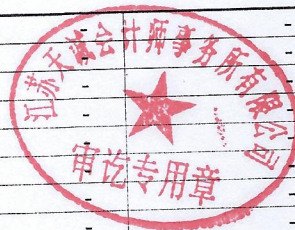 江苏天会计师事务所有限公司
审讫专用章